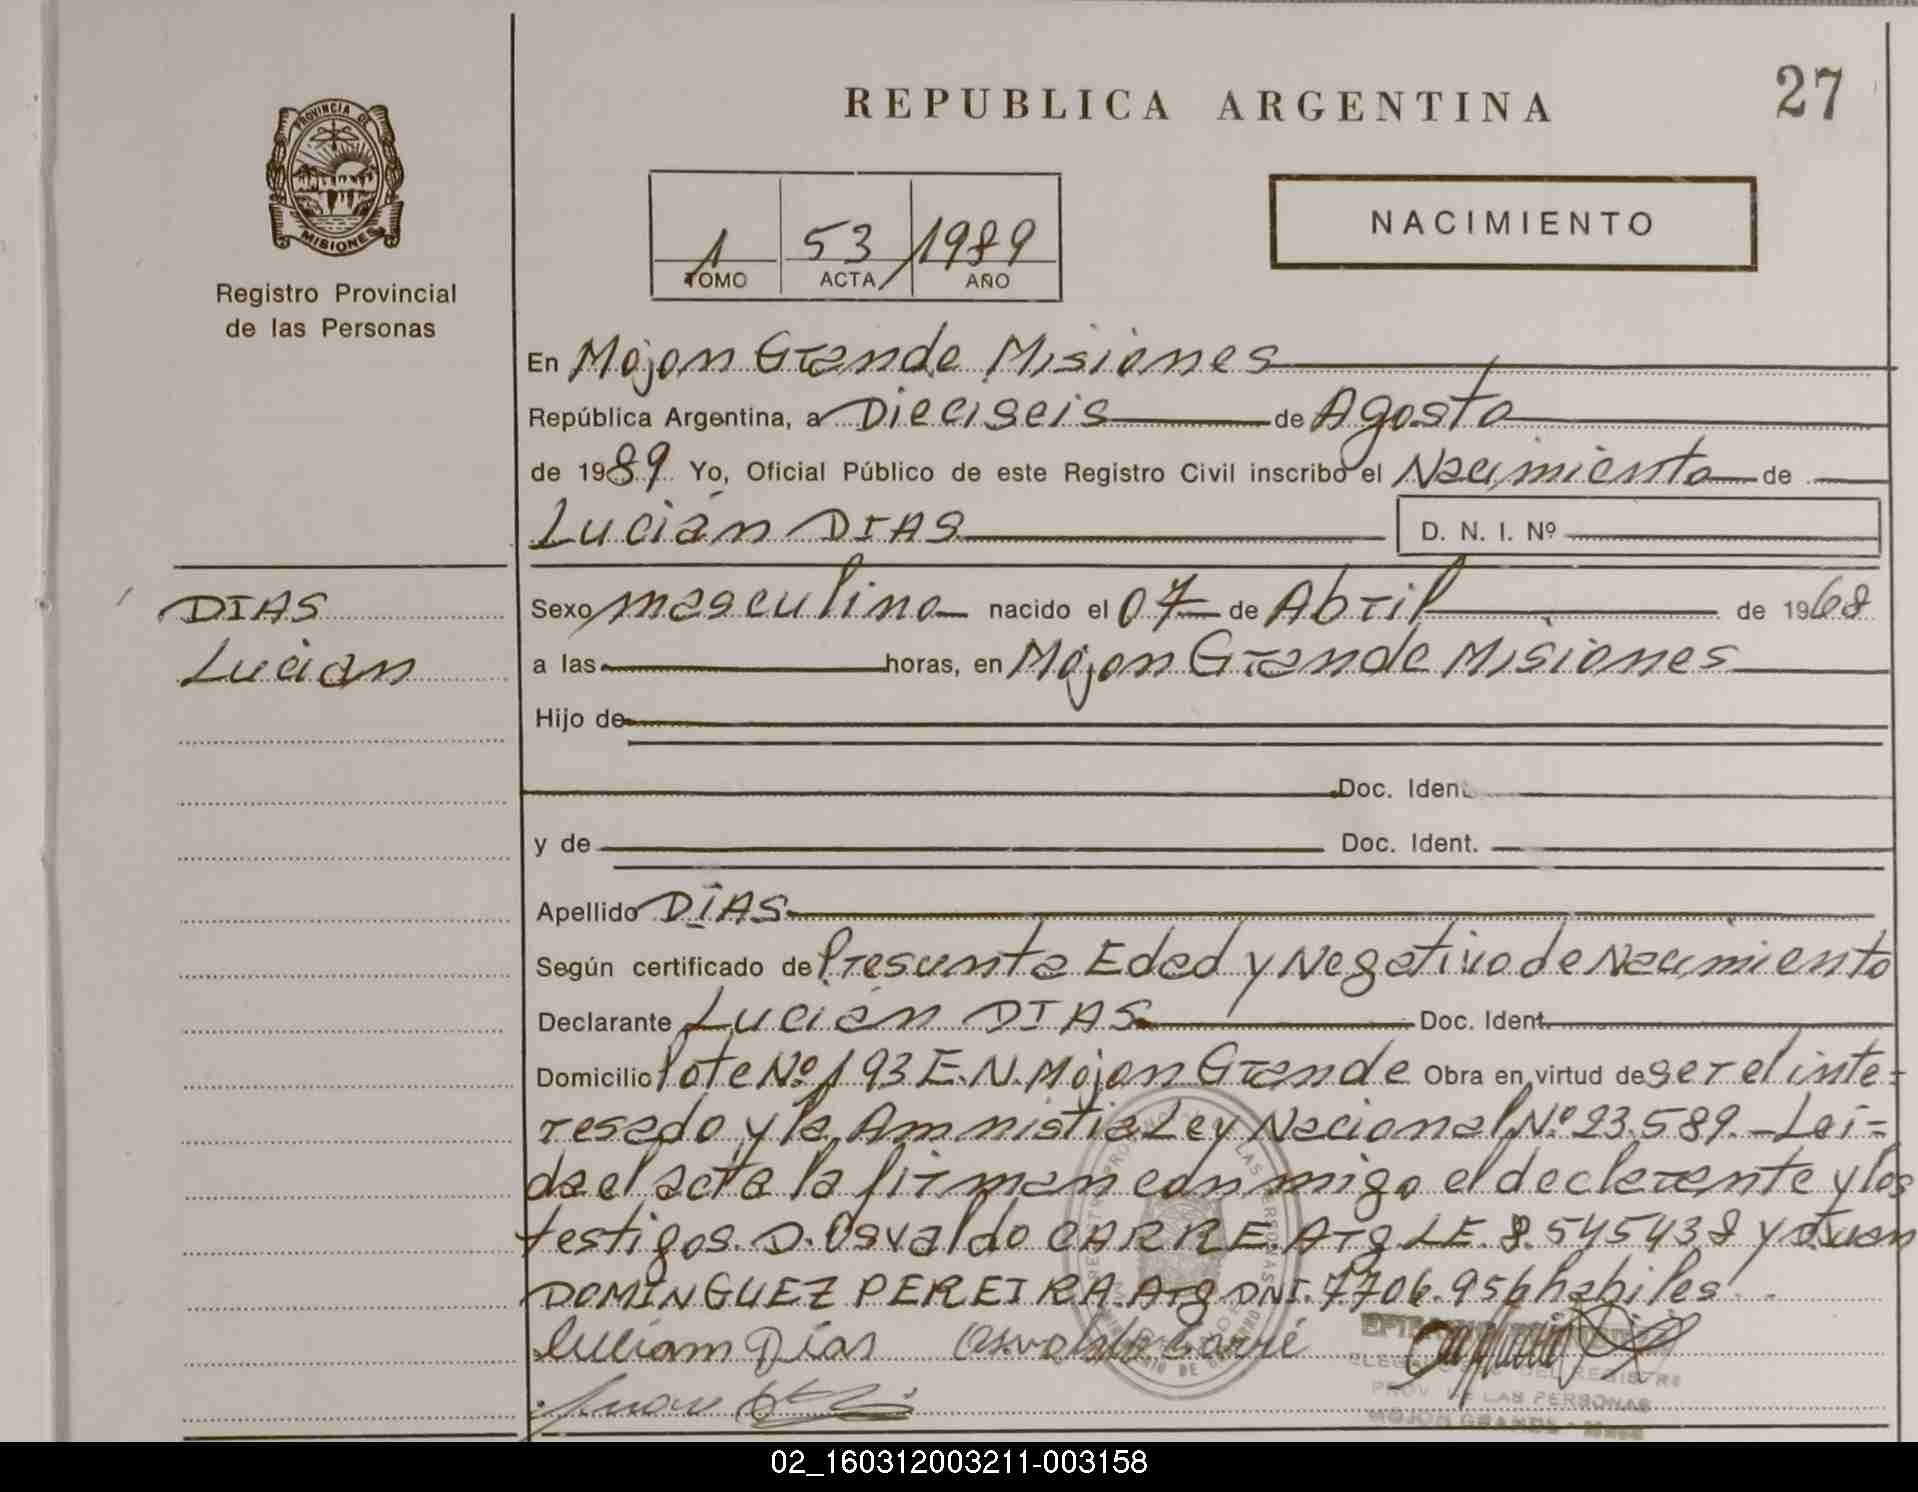 REPUBLICA ARGENTINA
27
PROVINCIA DE
MISIONES
Registro Provincial
de las Personas
1 53 1989
TOMO ACTA AÑO
NACIMIENTO
En Mojon Grande Misiones
República Argentina, a Dieciseis de Agosto
de 1989 Yo, Oficial Público de este Registro Civil inscribo el Nacimiento de
Lucián DIAS D. N. I. Nº
DIAS
Lucian
Sexo masculino nacido el 07 de Abril de 1968
a las horas, en Mojon Grande Misiones
Hijo de
Doc. Ident.
y de Doc. Ident.
Apellido DÍAS
Según certificado de Presunta Edad y Negativo de Nacimiento
Declarante Lucián DIAS Doc. Ident.
Domicilio lote Nº 193 E.N. Mojon Grande Obra en virtud de ser el inte-
resado y la Amnistia Ley Nacional Nº 23.589.- Lei=
da el acta la firman conmigo el declarante y los
testigos. D. Osvaldo CARRE. Arg LE. 8.545438 y Juan
DOMINGUEZ PEREIRA. Arg DNI. 7706.956 habiles.
Luciam Dias Osvaldo Carré
Juan
DEL REGISTRO
PROV. DE LAS PERSONAS
MOJON GRANDE
02_160312003211-003158